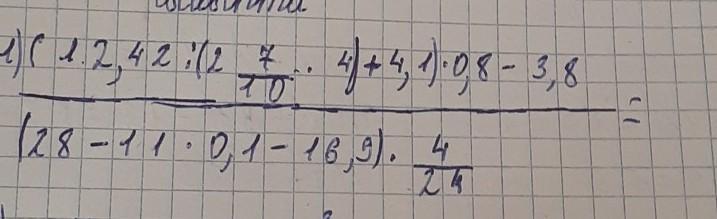 1) (12,42 : (2 7/10 · 4) + 4,1) · 0,8 - 3,8 =
(28 - 11 · 0,1 - 16,9) · 4/24